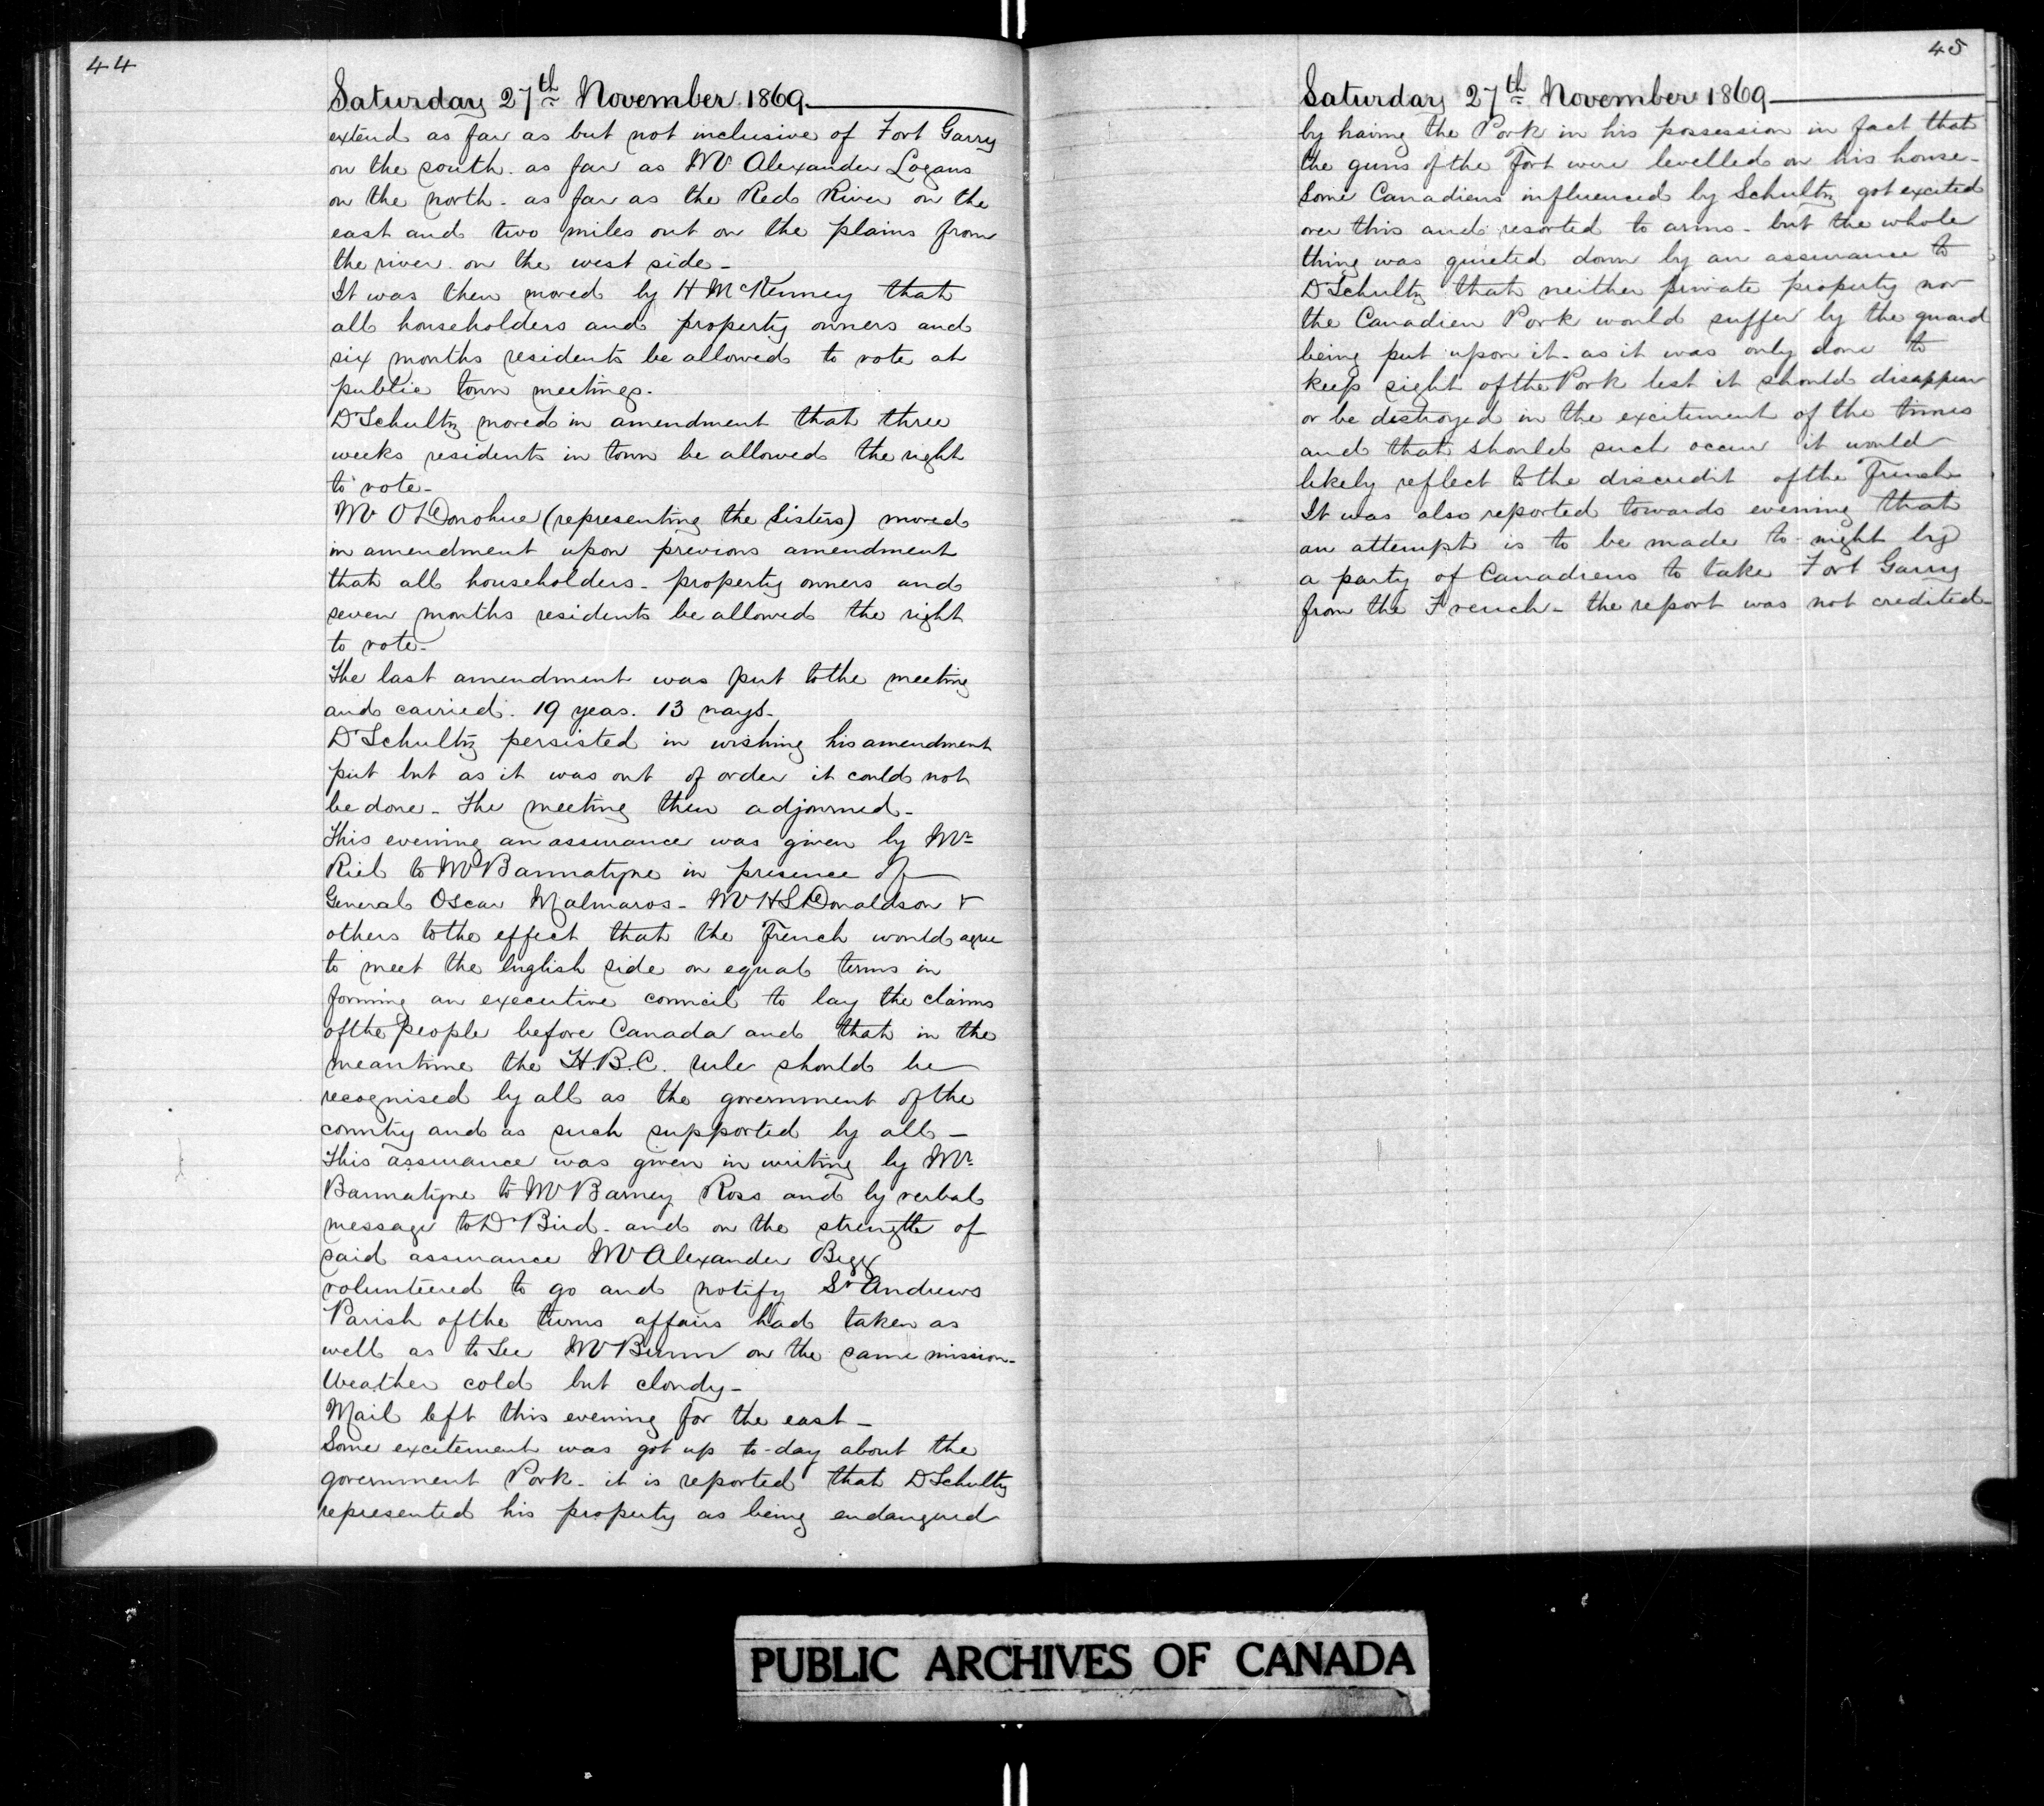 44
Saturday 27th November 1869.
extend as far as but not inclusive of Fort Garry
on the south. as far as Mr Alexander Logans
on the north - as far as the Red River on the
east and two miles out on the plains from
the river on the west side -
It was then moved by H McKenney that
all householders and property owners and
six months residents be allowed to vote at
public town meetings.
Dr Schultz moved in amendment that three
weeks residents in town be allowed the right
to vote -
Mr O'Donohue (representing the Sisters) moved
in amendment upon previous amendment
that all householders - property owners and
seven months residents be allowed the right
to vote -
The last amendment was put to the meeting
and carried. 19 yeas. 13 nays -
Dr Schultz persisted in wishing his amendment
put but as it was out of order it could not
be done - The meeting then adjourned -
This evening an assurance was given by Mr
Riel to Mr Bannatyne in presence of
General Oscar Malmaros - Mr HS Donaldson &
others to the effect that the French would agree
to meet the English side on equal terms in
forming an executive council to lay the claims
of the people before Canada and that in the
meantime the H.B.C. rule should be
recognised by all as the government of the
country and as such supported by all -
This assurance was given in writing by Mr
Bannatyne to Mr Barney Ross and by verbal
message to Dr Bird - and on the strength of
said assurance Mr Alexander Begg
volunteered to go and notify St Andrews
Parish of the turns affairs had taken as
well as to see Mr Bunn on the same mission -
Weather cold but cloudy -
Mail left this evening for the east -
Some excitement was got up to-day about the
government Pork - it is reported that Dr Schultz
represented his property as being endangered
45
Saturday 27th November 1869
by having the Pork in his possession in fact that
the guns of the Fort were levelled on his house -
Some Canadiens influenced by Schultz got excited
over this and resorted to arms - but the whole
thing was quieted down by an assurance to
Dr Schultz that neither private property nor
the Canadien Pork would suffer by the guard
being put upon it - as it was only done to
keep sight of the Pork lest it should disappear
or be destroyed in the excitement of the times
and that should such occur it would
likely reflect to the discredit of the French
It was also reported towards evening that
an attempt is to be made to-night by
a party of Canadiens to take Fort Garry
from the French - the report was not credited -
PUBLIC ARCHIVES OF CANADA